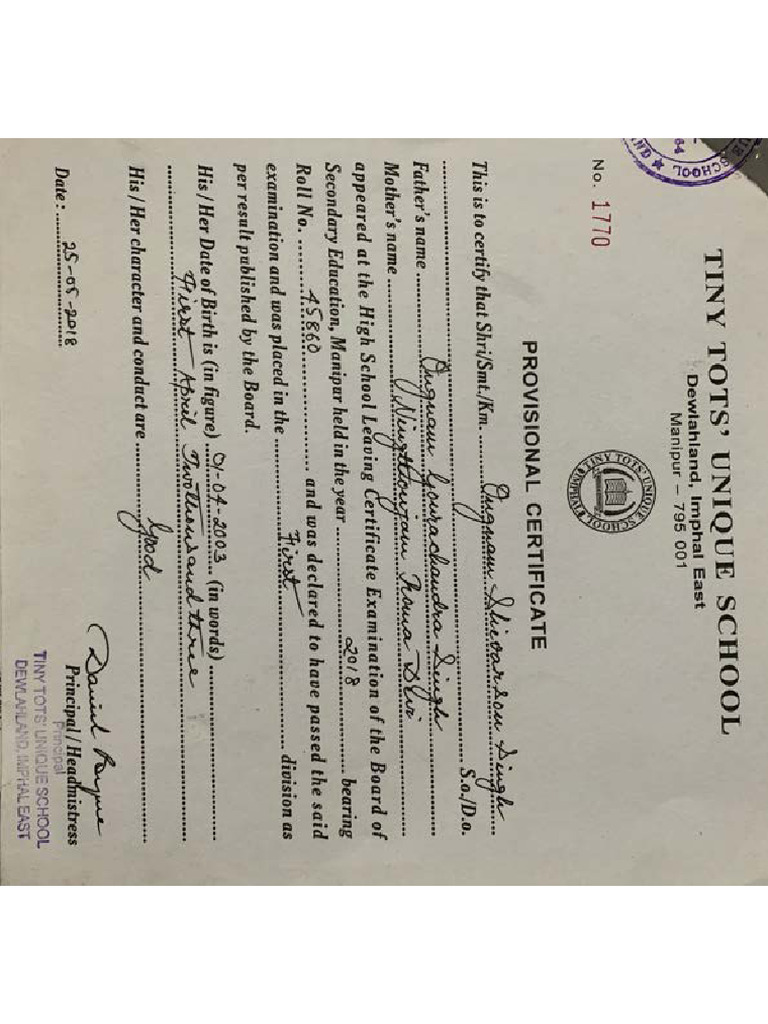 TINY TOTS' UNIQUE SCHOOL
Dewlahland, Imphal East
Manipur – 795 001
No. 1770
TINY TOTS' UNIQUE SCHOOL
PROVISIONAL CERTIFICATE
This is to certify that Shri/Smt./Km. Ougnam Singh
S.o./D.o.
Father's name Ougnam Gourachandra Singh
Mother's name Ningthoujam Roma Devi
appeared at the High School Leaving Certificate Examination of the Board of
Secondary Education, Manipur held in the year 2018 bearing
Roll No. 45860 and was declared to have passed the said
examination and was placed in the First division as
per result published by the Board.
His / Her Date of Birth is (in figure) 01-04-2003 (in words)
First April Twothousand three
His / Her character and conduct are Good
Date : 25-05-2018
Principal / Headmistress
Principal
TINY TOTS' UNIQUE SCHOOL
DEWLAHLAND, IMPHAL EAST